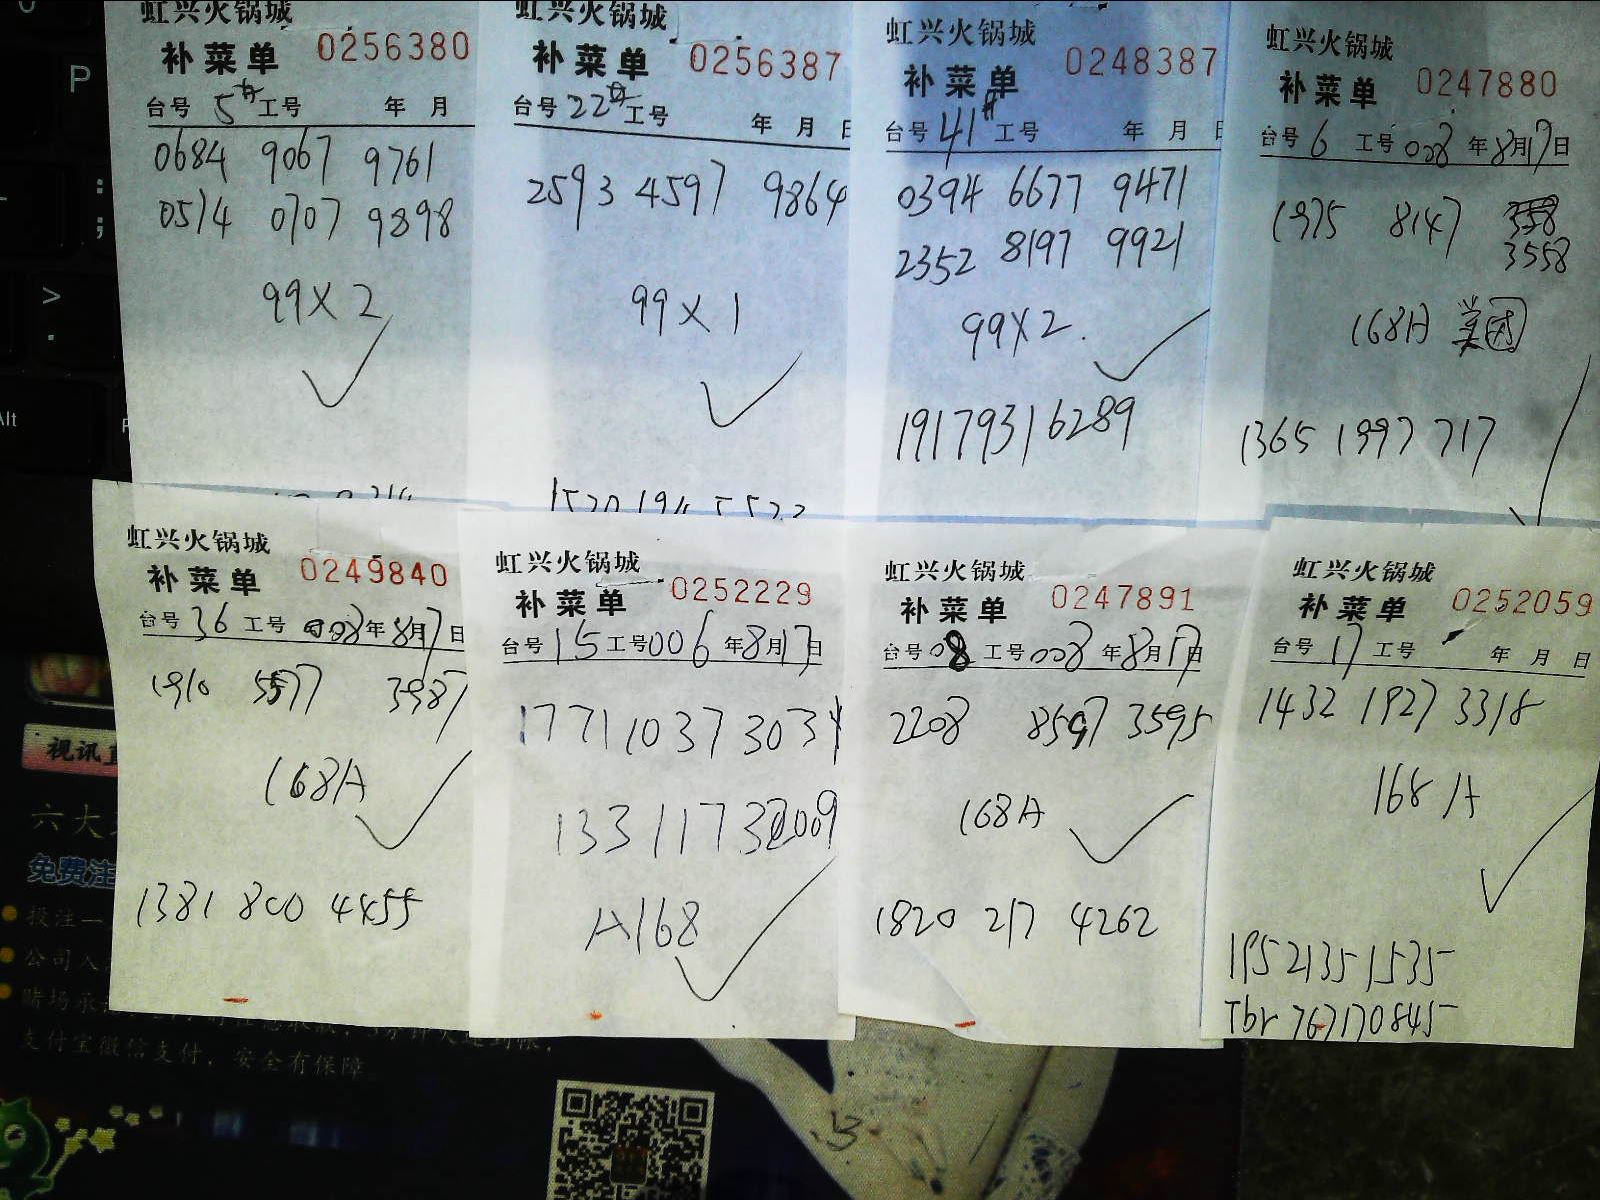 虹兴火锅城
补菜单 0256380
台号 5 工号 年 月
0684 9067 9761
0514 0707 9898
99X2
虹兴火锅城
补菜单 0256387
台号 22 工号 年 月 日
2593 4597 9864
99X1
虹兴火锅城
补菜单 0248387
台号 41 工号 年 月 日
0394 6677 9471
2352 8197 9921
99X2.
19179316289
虹兴火锅城
补菜单 0247880
台号 6 工号 008 年 8月17日
1975 8147
3558
168A 美团
1365 1997 717
虹兴火锅城
补菜单 0249840
台号 36 工号 008年 8月17日
1910 5577 3987
168A
1381 800 4455
虹兴火锅城
补菜单 0252229
台号 15 工号006 年8月17日
1771 1037 3031
13311732009
A168
虹兴火锅城
补菜单 0247891
台号 08 工号 008 年8月17日
2208 8597 3595
168A
1820 217 4262
虹兴火锅城
补菜单 0252059
台号 17 工号 年 月 日
1432 1927 3318
168 A
19521351535
Tbr 767170845
P
;
:
>
.
Alt
视讯
六大
免费注
投注一
公司入
赌场承
支付宝微信支付，安全有保障